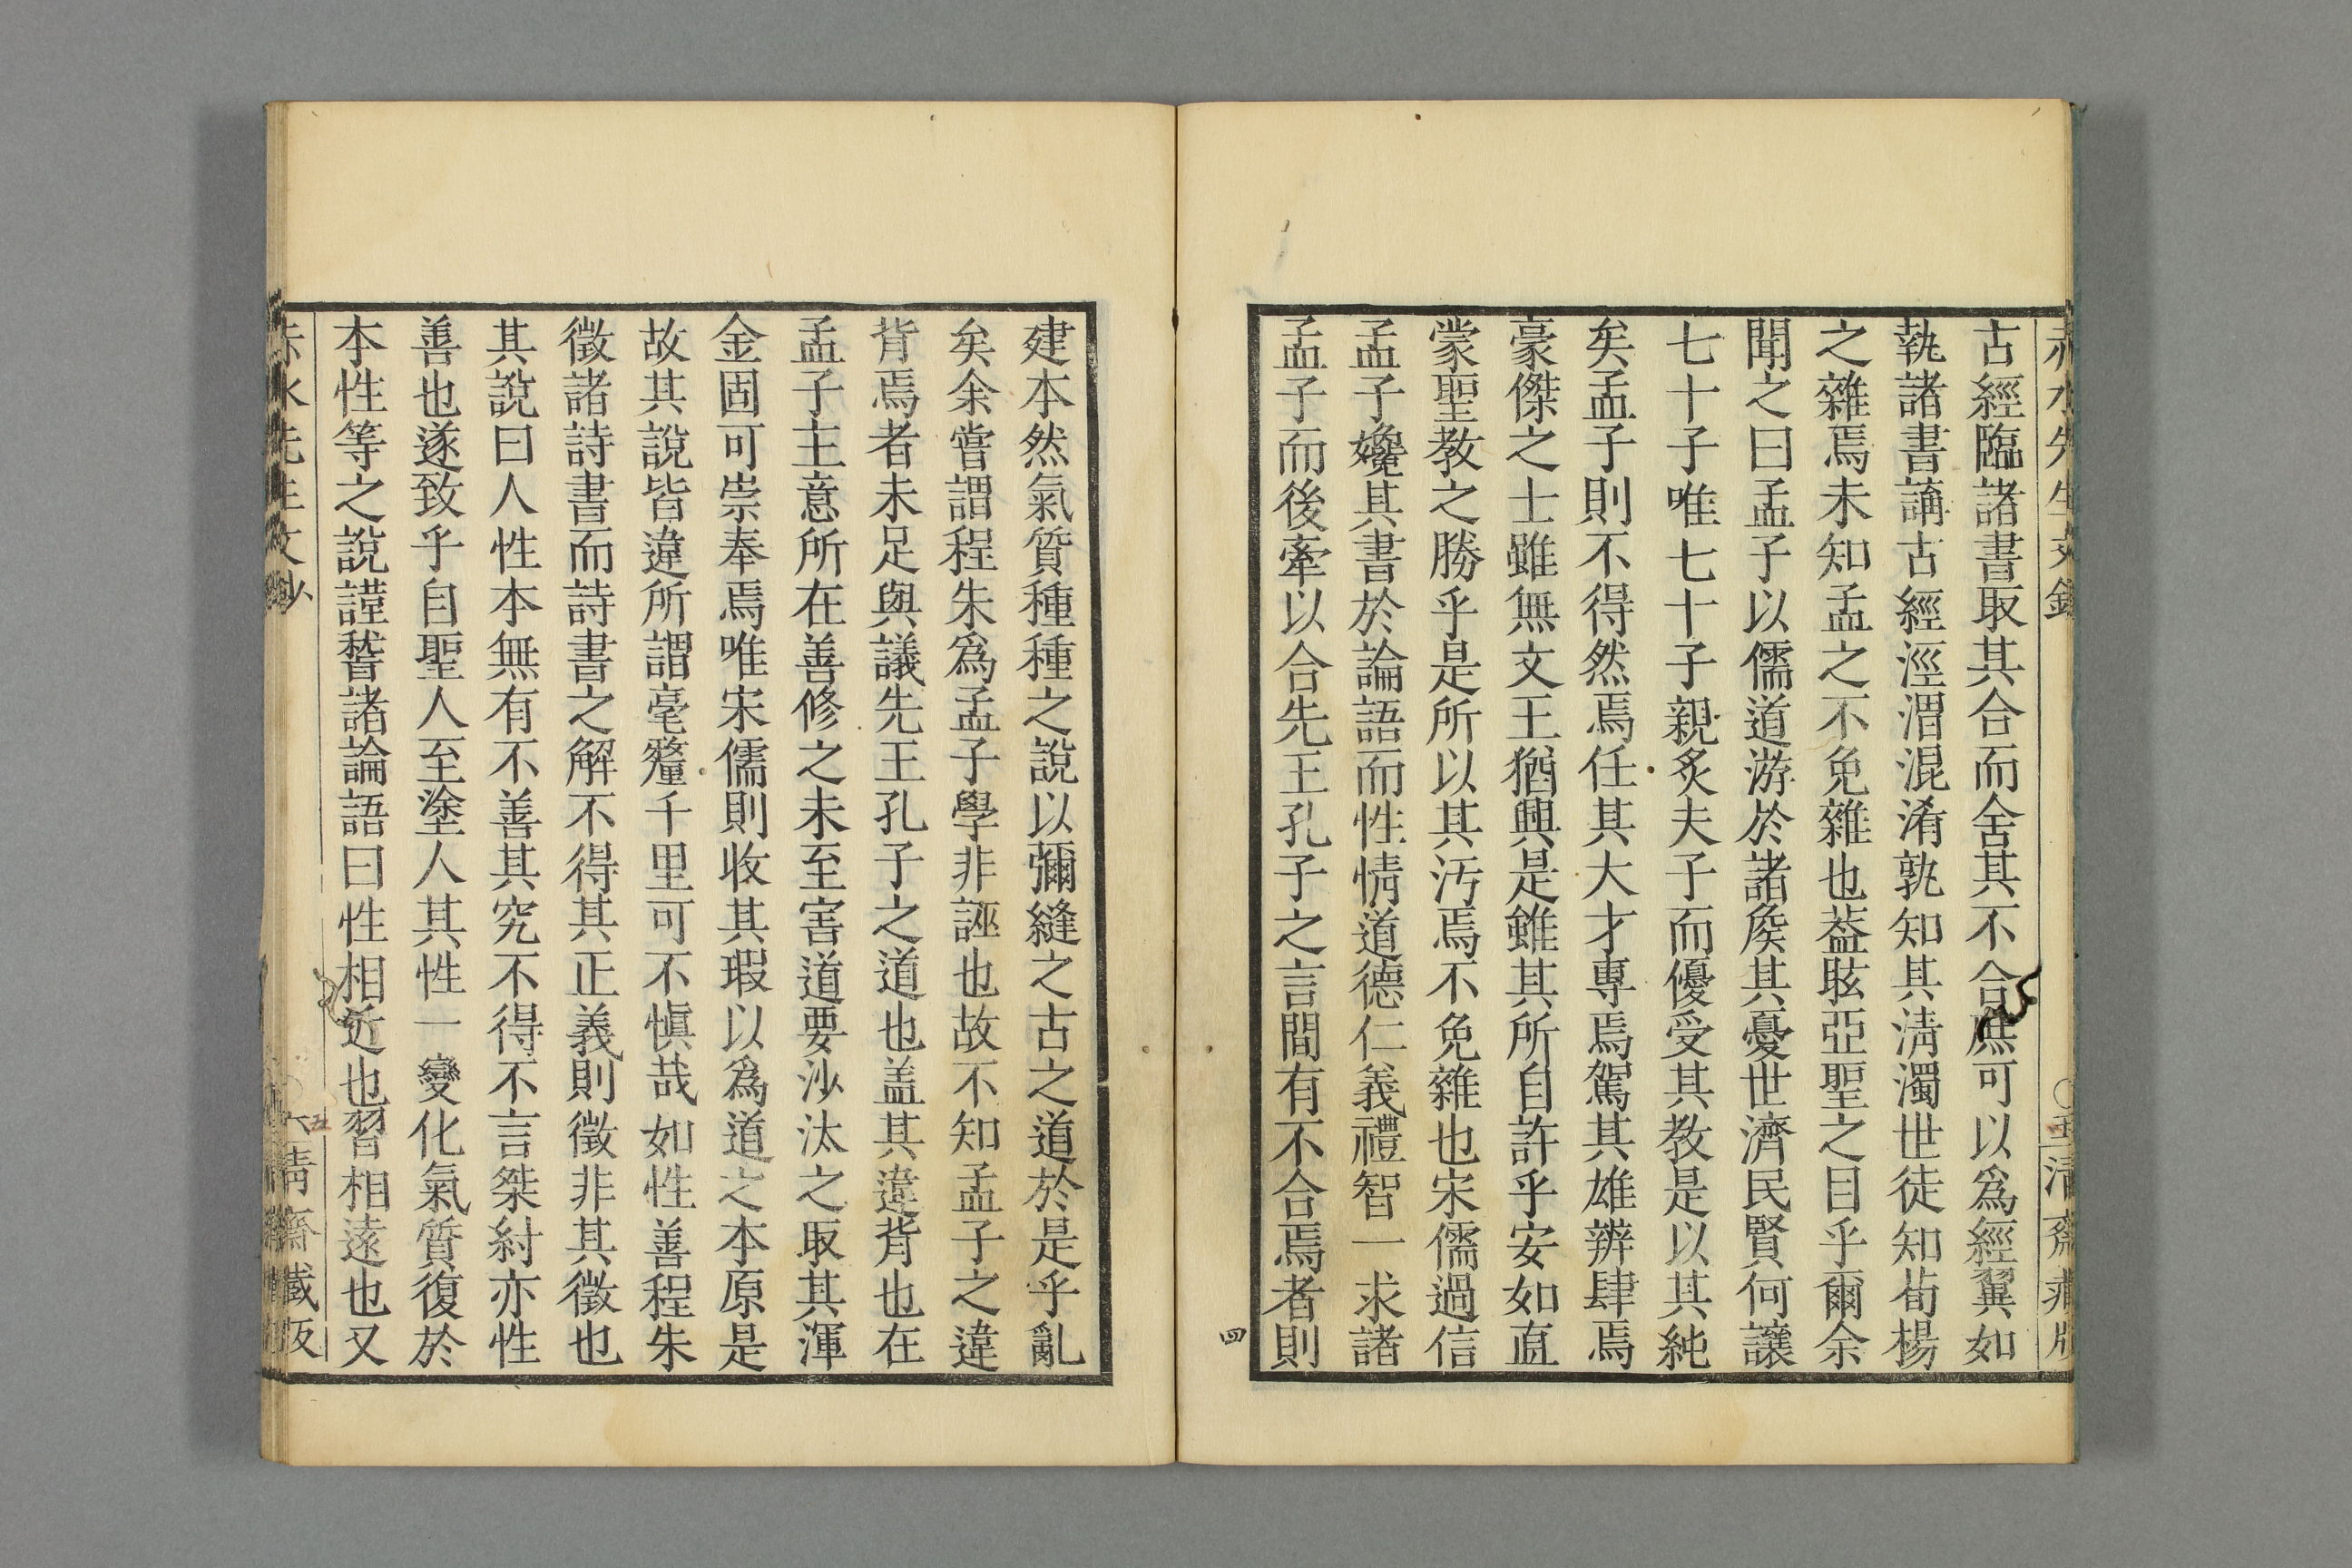 古經臨諸書取其合而舍其不合庶可以爲經翼如
執諸書講古經涇渭混淆孰知其淸濁世徒知荀楊
之雜焉未知孟之不免雜也葢眩亞聖之目乎爾余
聞之曰孟子以儒道游於諸矦其憂世濟民賢何讓
七十子唯七十子親炙夫子而優受其教是以其純
矣孟子則不得然焉任其大才專焉駕其雄辨肆焉
豪傑之士雖無文王猶興是雖其所自許乎安如直
蒙聖教之勝乎是所以其汚焉不免雜也宋儒過信
孟子纔其書於論語而性情道德仁義禮智一求諸
孟子而後牽以合先王孔子之言間有不合焉者則
四
建本然氣質種種之說以彌縫之古之道於是乎亂
矣余嘗謂程朱爲孟子學非誣也故不知孟子之違
背焉者未足與議先王孔子之道也盖其違背也在
孟子主意所在善修之未至害道要沙汰之取其渾
金固可崇奉焉唯宋儒則收其瑕以爲道之本原是
故其說皆違所謂毫釐千里可不愼哉如性善程朱
徵諸詩書而詩書之解不得其正義則徵非其徵也
其說曰人性本無有不善其究不得不言桀紂亦性
善也遂致乎自聖人至塗人其性一變化氣質復於
本性等之說謹稽諸論語曰性相近也習相遠也又